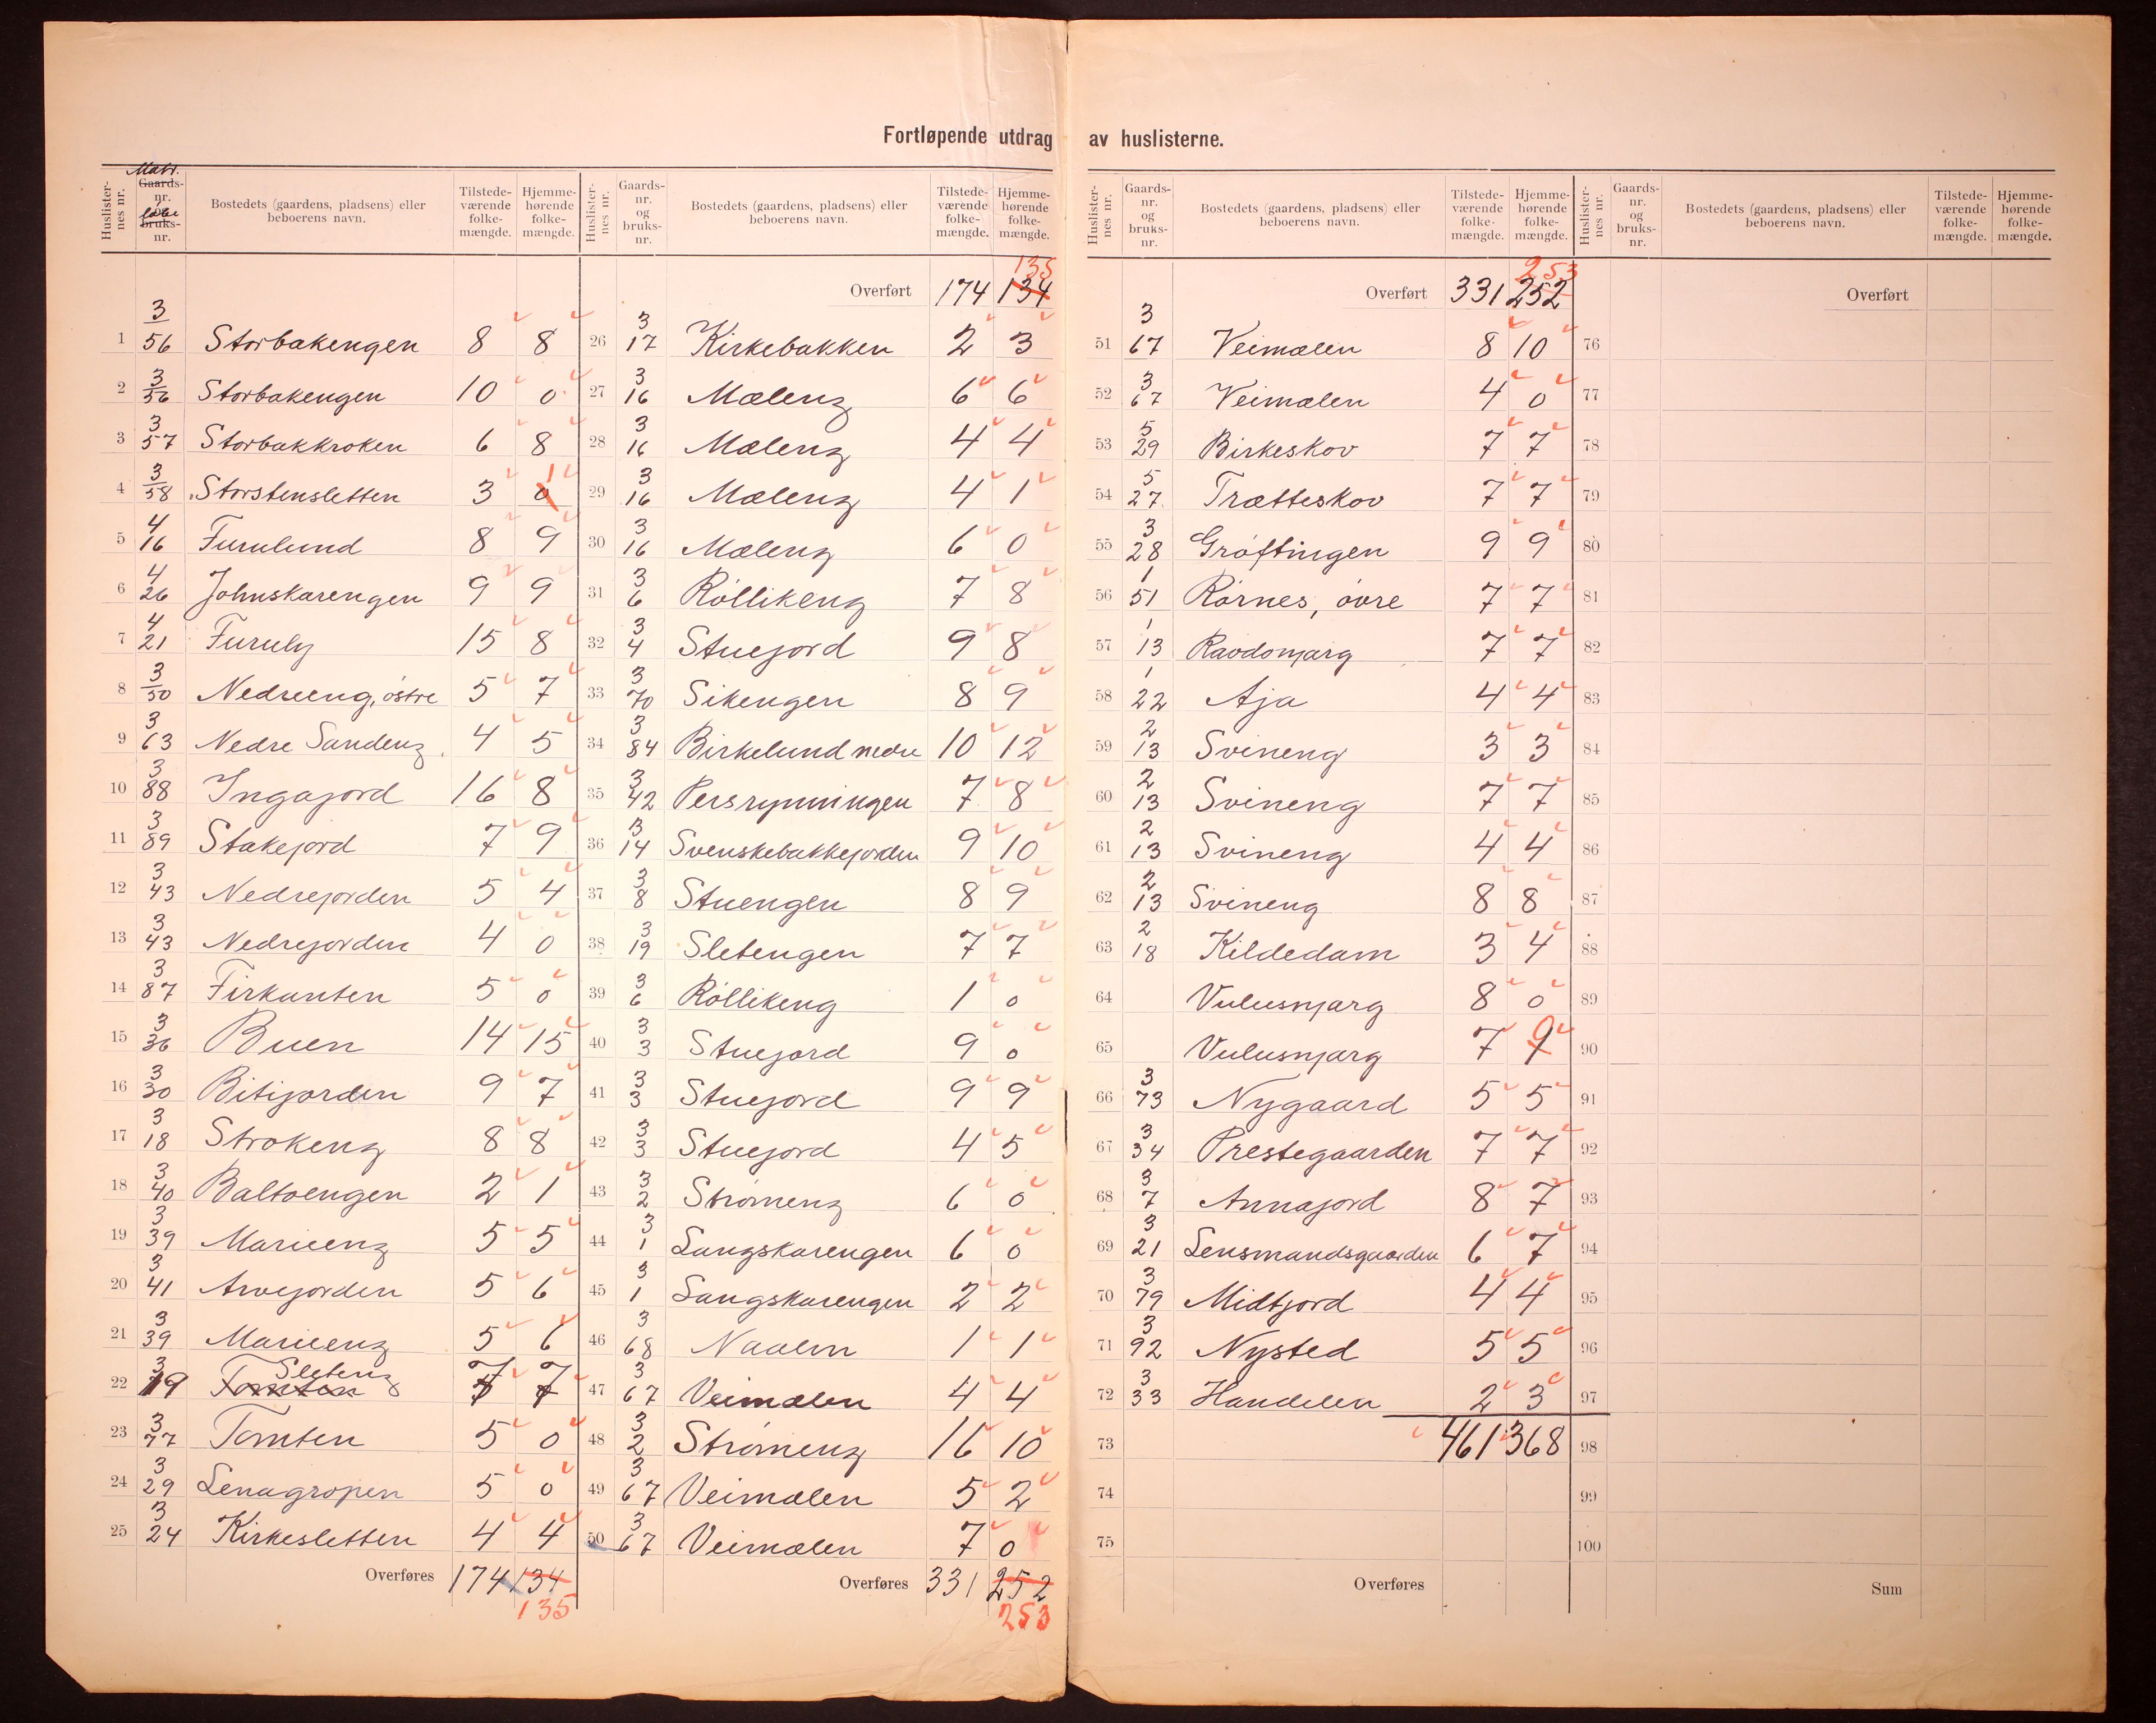 Fortløpende utdrag av huslisterne.
Huslister-nes nr. | Matr. Gaards-nr. og løbe bruks-nr. | Bostedets (gaardens, pladsens) eller beboerens navn. | Tilstede-værende folke-mængde. | Hjemme-hørende folke-mængde.
1 3/56 Storbakengen 8 8
2 3/56 Storbakengen 10 0
3 3/57 Storbakkroken 6 8
4 3/58 Storstensletten 3 0 1
5 4/16 Furulund 8 9
6 4/26 Johnskarengen 9 9
7 4/21 Furuly 15 8
8 3/50 Nedreeng, østre 5 7
9 3/63 Nedre Sandeng 4 5
10 3/88 Ingajord 16 8
11 3/89 Stakejord 7 9
12 3/43 Nedrejorden 5 4
13 3/43 Nedrejorden 4 0
14 3/87 Firkanten 5 0
15 3/36 Buen 14 15
16 3/30 Bitijorden 9 7
17 3/18 Strokeng 8 8
18 3/40 Baltoengen 2 1
19 3/39 Marieeng 5 5
20 3/41 Arvejorden 5 6
21 3/39 Marieeng 5 6
22 3/19 Tomten Sleteng 7 7
23 3/77 Tomten 5 0
24 3/29 Lenagropen 5 0
25 3/24 Kirkesletten 4 4
Overføres 174 134
135
Huslister-nes nr. | Gaards-nr. og bruks-nr. | Bostedets (gaardens, pladsens) eller beboerens navn. | Tilstede-værende folke-mængde. | Hjemme-hørende folke-mængde.
135
Overført 174 134
26 3/17 Kirkebakken 2 3
27 3/16 Mæleng 6 6
28 3/16 Mæleng 4 4
29 3/16 Mæleng 4 1
30 3/16 Mæleng 6 0
31 3/6 Røllikeng 7 8
32 3/4 Stuejord 9 8
33 3/70 Sikengen 8 9
34 3/84 Birkelund nedre 10 12
35 3/42 Persrynningen 7 8
36 3/14 Svenskebakkejorden 9 10
37 3/8 Stuengen 8 9
38 3/19 Sletengen 7 7
39 3/6 Røllikeng 1 0
40 3/3 Stuejord 9 0
41 3/3 Stuejord 9 9
42 3/3 Stuejord 4 5
43 3/2 Strømeng 6 0
44 3/1 Langskarengen 6 0
45 3/1 Langskarengen 2 2
46 3/68 Naalen 1 1
47 3/67 Veimælen 4 4
48 3/2 Strømeng 16 10
49 3/67 Veimælen 5 2
50 3/67 Veimælen 7 0
Overføres 331 252
253
Huslister-nes nr. | Gaards-nr. og bruks-nr. | Bostedets (gaardens, pladsens) eller beboerens navn. | Tilstede-værende folke-mængde. | Hjemme-hørende folke-mængde.
253
Overført 331 252
51 3/67 Veimælen 8 10
52 3/67 Veimælen 4 0
53 5/29 Birkeskov 7 7
54 5/27 Trætteskov 7 7
55 3/28 Grøftingen 9 9
56 1/51 Rørnes, øvre 7 7
57 1/13 Ravdonjarg 7 7
58 1/22 Aja 4 4
59 2/13 Svineng 3 3
60 2/13 Svineng 7 7
61 2/13 Svineng 4 4
62 2/13 Svineng 8 8
63 2/18 Kildedam 3 4
64 Vulusnjarg 8 0
65 Vulusnjarg 7 9
66 3/73 Nygaard 5 5
67 3/34 Prestegaarden 7 7
68 3/7 Annajord 8 7
69 3/21 Lensmandsgaarden 6 7
70 3/79 Midtjord 4 4
71 3/92 Nysted 5 5
72 3/33 Handelen 2 3
73 461 368
74
75
Overføres
Huslister-nes nr. | Gaards-nr. og bruks-nr. | Bostedets (gaardens, pladsens) eller beboerens navn. | Tilstede-værende folke-mængde. | Hjemme-hørende folke-mængde.
Overført
76
77
78
79
80
81
82
83
84
85
86
87
88
89
90
91
92
93
94
95
96
97
98
99
100
Sum